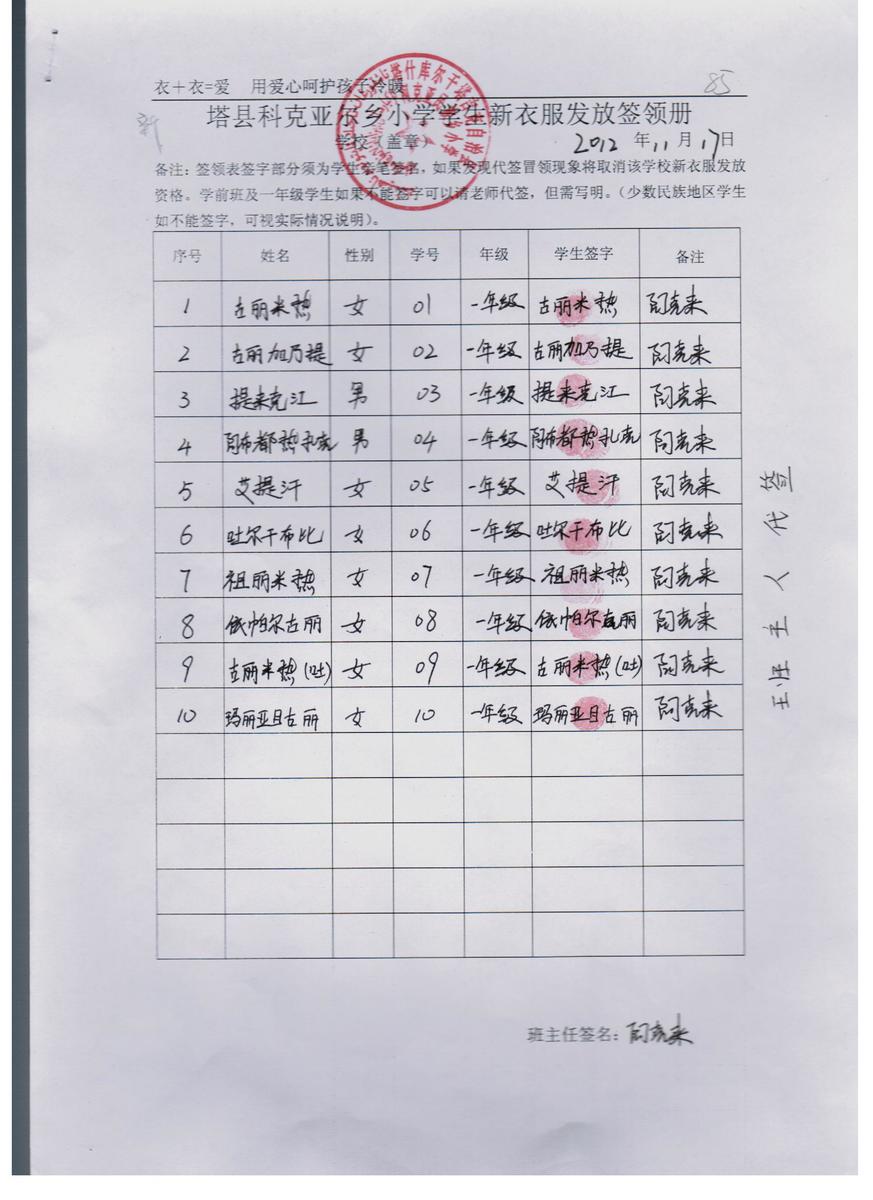 衣＋衣=爱 用爱心呵护孩子冷暖
85
新
塔县科克亚尔乡小学学生新衣服发放签领册
学校（盖章） 2012 年 11 月 17 日
备注：签领表签字部分须为学生亲笔签名，如果发现代签冒领现象将取消该学校新衣服发放
资格。学前班及一年级学生如果不能签字可以请老师代签，但需写明。（少数民族地区学生
如不能签字，可视实际情况说明）。
序号 姓名 性别 学号 年级 学生签字 备注
1 古丽米热 女 01 一年级 古丽米热 阿克来
2 古丽加乃提 女 02 一年级 古丽加乃提 阿克来
3 提来克江 男 03 一年级 提来克江 阿克来
4 阿布都热扎克 男 04 一年级 阿布都热扎克 阿克来
5 艾提汗 女 05 一年级 艾提汗 阿克来
6 吐尔干布比 女 06 一年级 吐尔干布比 阿克来
7 祖丽米热 女 07 一年级 祖丽米热 阿克来
8 依帕尔古丽 女 08 一年级 依帕尔古丽 阿克来
9 古丽米热(吐) 女 09 一年级 古丽米热(吐) 阿克来
10 玛丽亚且古丽 女 10 一年级 玛丽亚且古丽 阿克来
班主任签名：阿克来
班主人代签